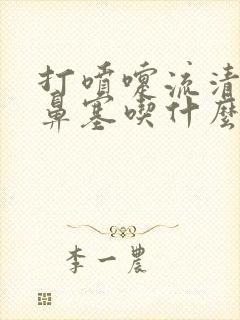 打噴嚏流清
鼻塞喫什麼
李一農